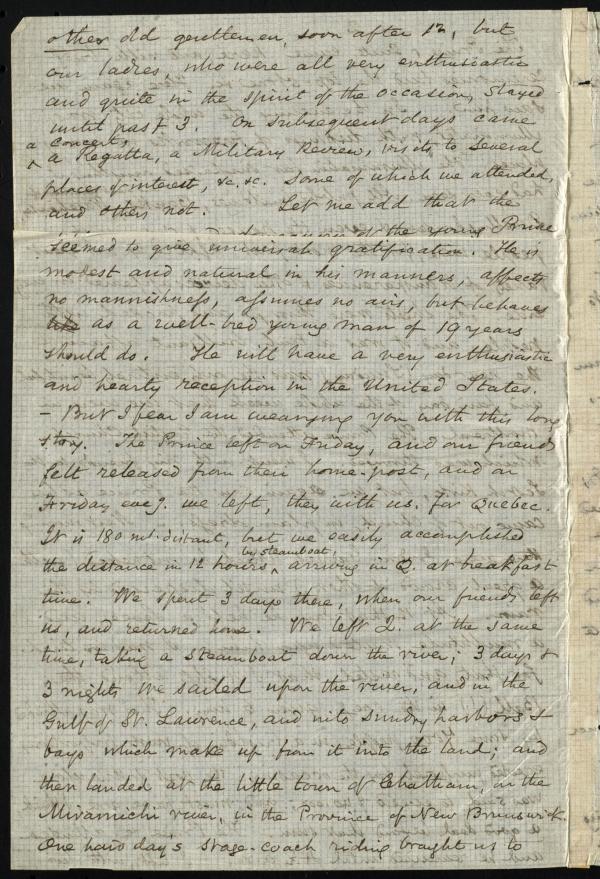 other old gentlemen, soon after 12, but
our ladies, who were all very enthusiastic
and quite in the spirit of the occasion, stayed
until past 3. On subsequent days came
a concert,
^ a Regatta, a Military Review, visits to several
places of interest, &c. &c. Some of which we attended,
and others not. Let me add that the
of the young Prince
seemed to give universal gratification. He is
modest and natural in his manners, affects
no mannishness, assumes no airs, but behaves
like as a well-bred young man of 19 years
should do. He will have a very enthusiastic
and hearty reception in the United States.
- But I fear I am wearying you with this long
story. The Prince left on Friday, and our friends
felt released from their home-post, and on
Friday eveg. we left, they with us. for Quebec.
It is 180 ms. distant, but we easily accomplished
by steamboat,
the distance in 12 hours ^ arriving in Q. at breakfast
time. We spent 3 days there, when our friends left
us, and returned home. We left Q. at the same
time, taking a steamboat down the river; 3 days &
3 nights we sailed upon the river, and in the
Gulf of St. Lawrence, and into sundry harbors &
bays which make up from it into the land; and
then landed at the little town of Chatham, on the
Miramichi river, in the Province of New Brunswick.
One hard day's stage-coach riding brought us to